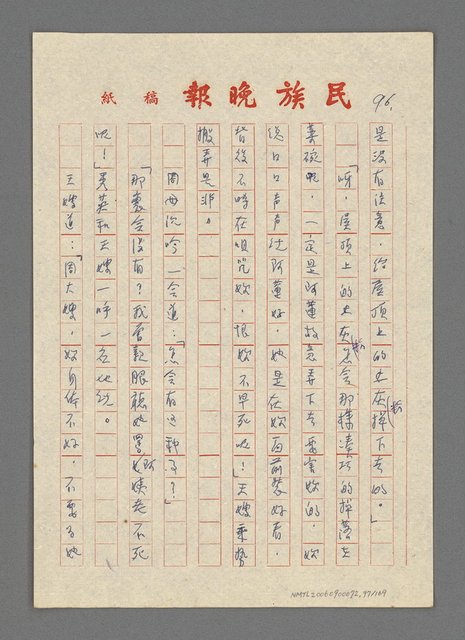 民族晚報 稿紙
96.
是沒有注意，給屋頂上的土灰掉下去的。」
「呀，屋頂上的土灰怎會那樣湊巧的掉落在
藥碗呢，一定是阿蓮故意弄下去要害妳的，妳
總口口聲聲說阿蓮好，她是在妳面前裝好看，
背後不時在咀咒妳，恨妳不早死呢！」王嫂乘勢
搬弄是非。
周母沉吟一會道：「怎會有這種事？」
「那裏會沒有？我曾親眼聽她罵妳阿姨老不死
呢！」秀英和王嫂一呼一應地說。
王嫂道：「周大嫂，妳身体不好，不要為她
NMTL20060900692,97/169